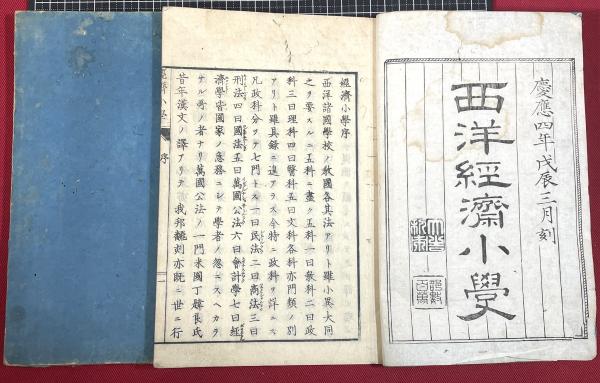 慶應四年戊辰三月刻
西洋經濟小學
經濟小學序
西洋諸國學校ノ教國各其法アリト雖小異大同
之ヲ要スルニ五科ニ盡ク五科一曰敎科二曰政
科三曰理科四曰醫科五曰文科各科亦門類ノ別
アリト雖具錄ニ遑アラス今特ニ政科ヲ詳ニス
凡政科分ツテ七門トス一曰民法二曰商法三曰
刑法四曰國法五曰萬國公法六曰會計學七曰經
濟學皆國家ノ急務ニシテ學者ノ忽ニスヘカラ
サル所ノ者ナリ萬國公法ノ一門米國丁韙良氏
昔年漢文ノ譯アリテ我邦翻刻亦既ニ世ニ行
經濟小學
序